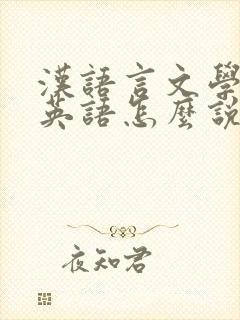 漢語言文學
英語怎麼說
夜知君